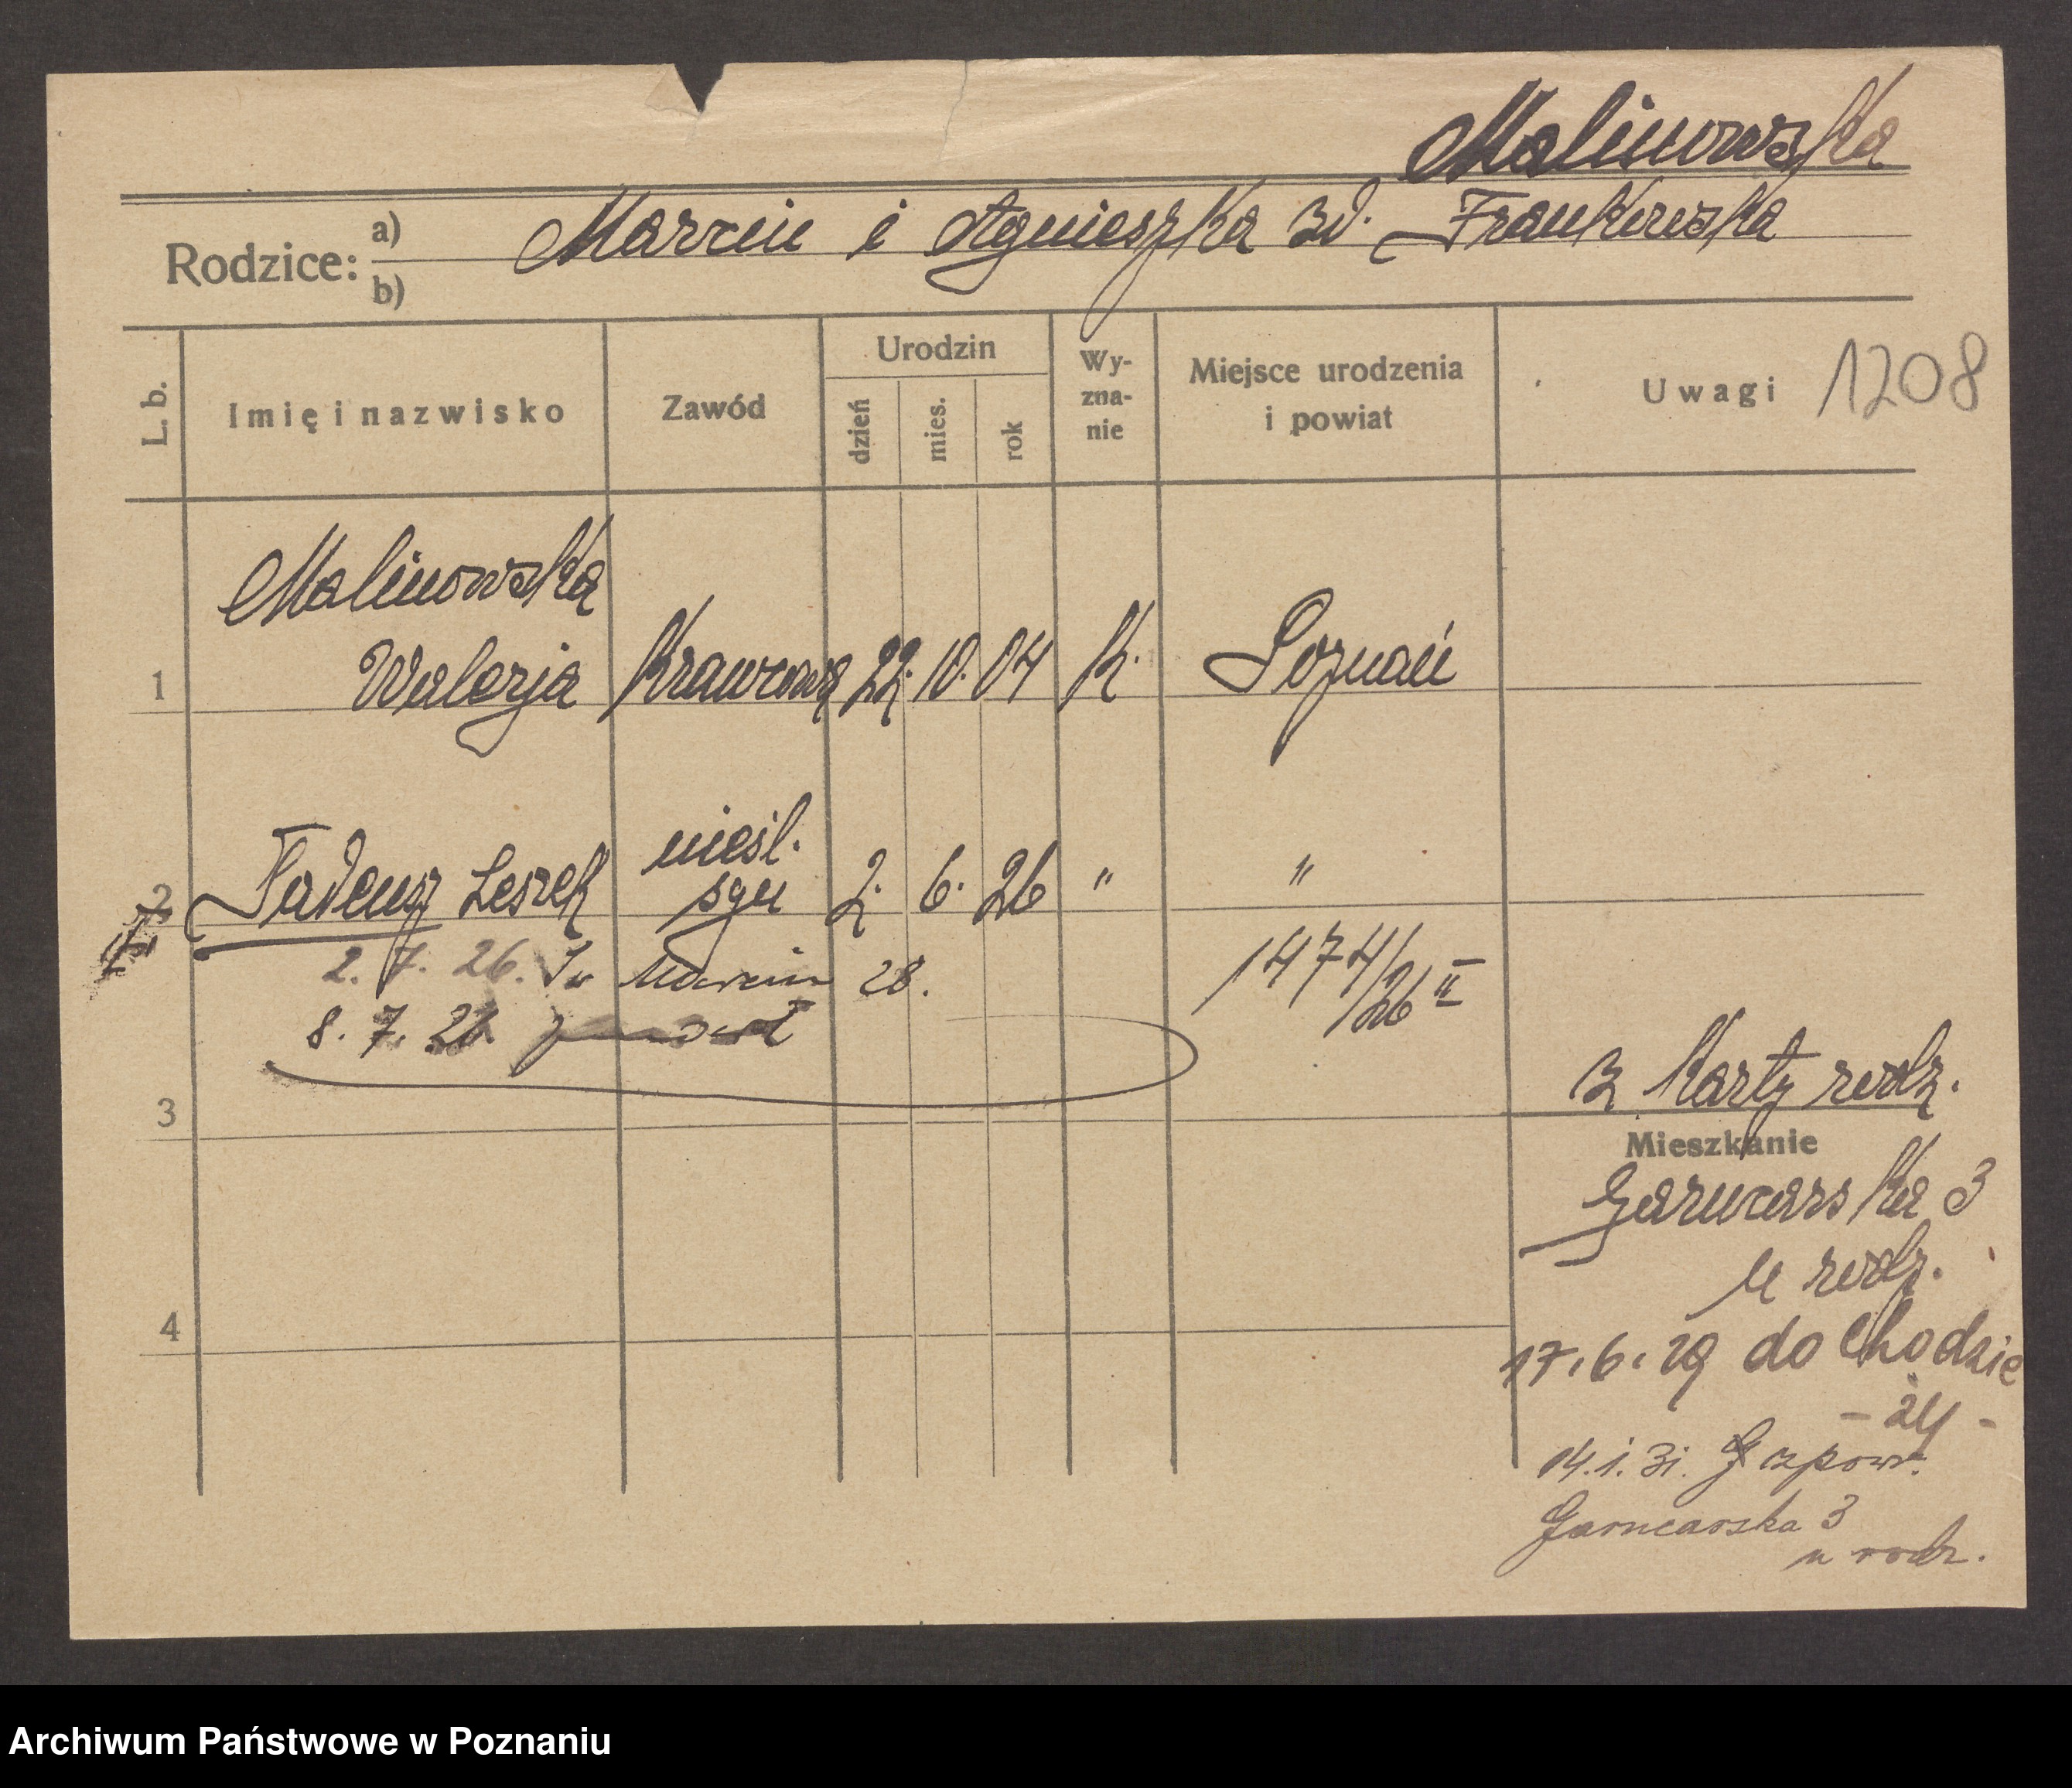 Malinowska
Rodzice: a) Marcin i Agnieszka zd. Frankowska
b)
L. b.
Imię i nazwisko
Zawód
Urodzin
dzień
mies.
rok
Wy-
zna-
nie
Miejsce urodzenia
i powiat
Uwagi
1208
Malinowska
1 Walerja Krawcowa 22. 10. 04 K. Poznań
nieśl.
2 Tadeusz Leszek syn 2. 6. 26 " "
2. 7. 26. Św Marcin 28.
1474/26 II
8. 7. 26
3
z Karty rodz.
Mieszkanie
Garncarska 3
u rodz.
4
17. 6. 29 do Chodzie
- ży -
14. 1. 31. z powr.
Garncarska 3
u rodz.
Archiwum Państwowe w Poznaniu